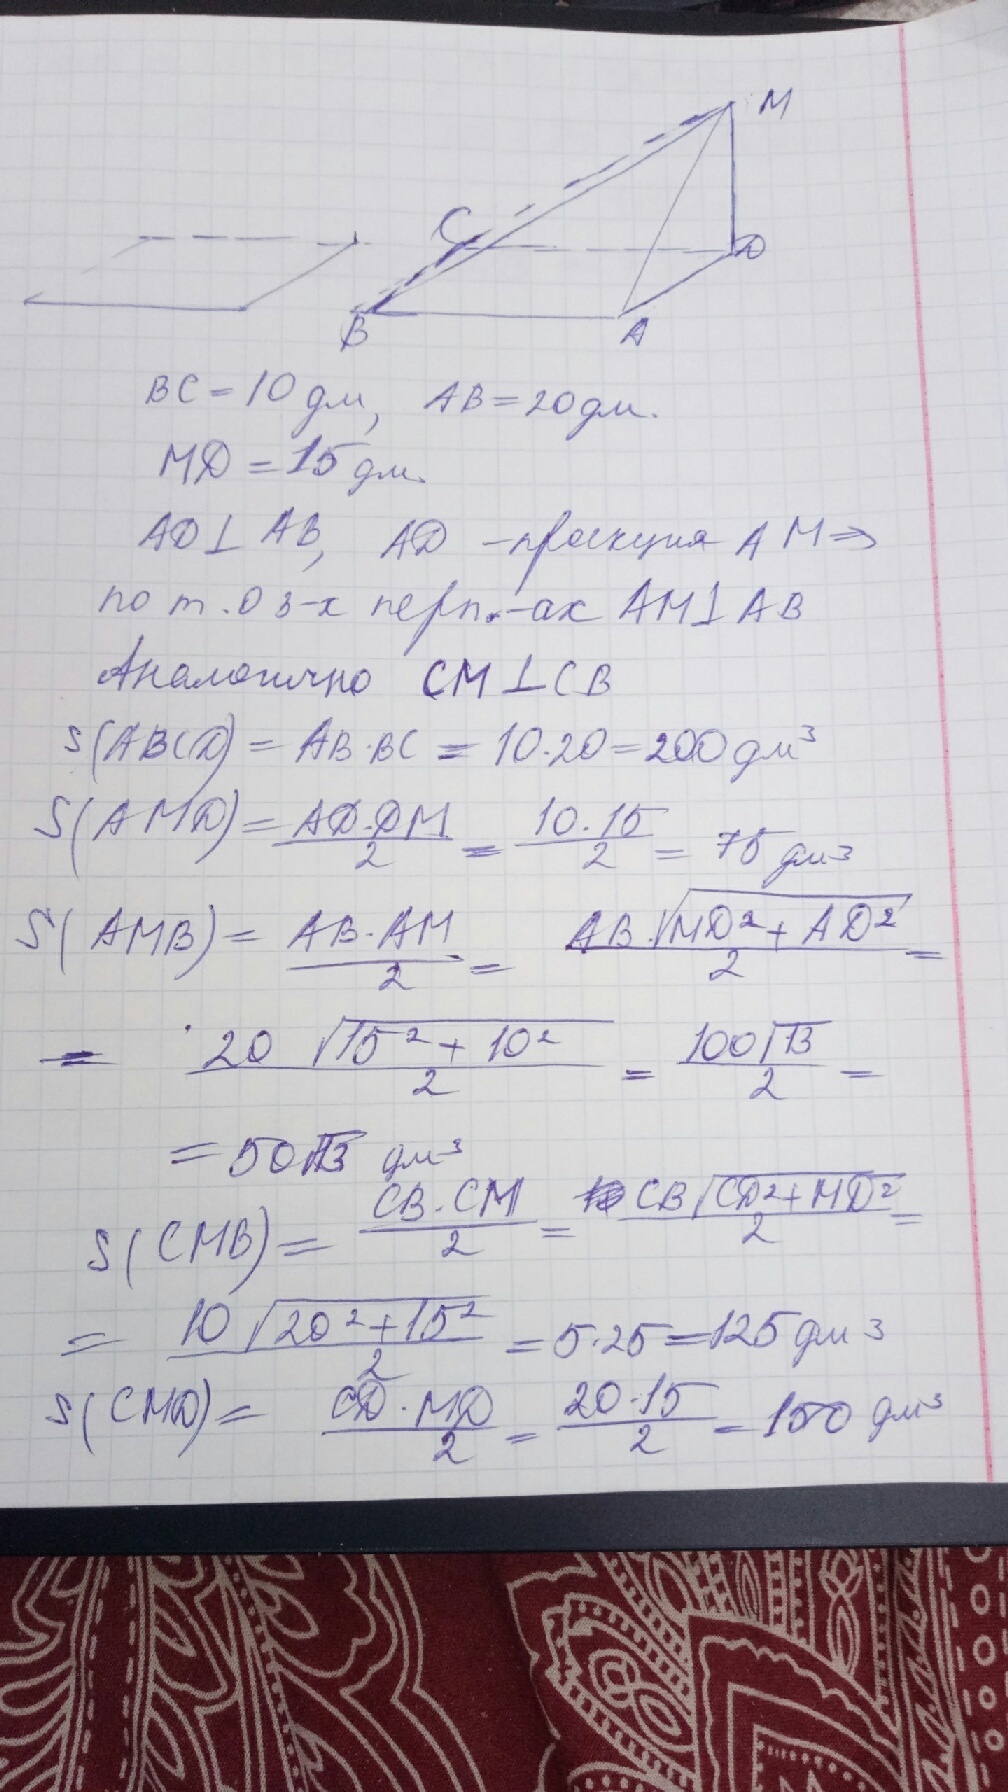 M
C
D
B
A
BC = 10 дм, AB = 20 дм.
MD = 15 дм.
AD ⊥ AB, AD – проекция AM ⇒
по т. о 3-х перп.-ах AM ⊥ AB
Аналогично CM ⊥ CB
S(ABCD) = AB·BC = 10·20 = 200 дм³
S(AMD) = AD·DM/2 = 10·15/2 = 75 дм³
S(AMB) = AB·AM/2 = AB·√(MD²+AD²)/2 =
= 20 √(15²+10²)/2 = 100√13/2 =
= 50√13 дм³
S(CMB) = CB·CM/2 = CB√(CD²+MD²)/2 =
= 10 √(20²+15²)/2 = 5·25 = 125 дм³
S(CMD) = CD·MD/2 = 20·15/2 = 150 дм³